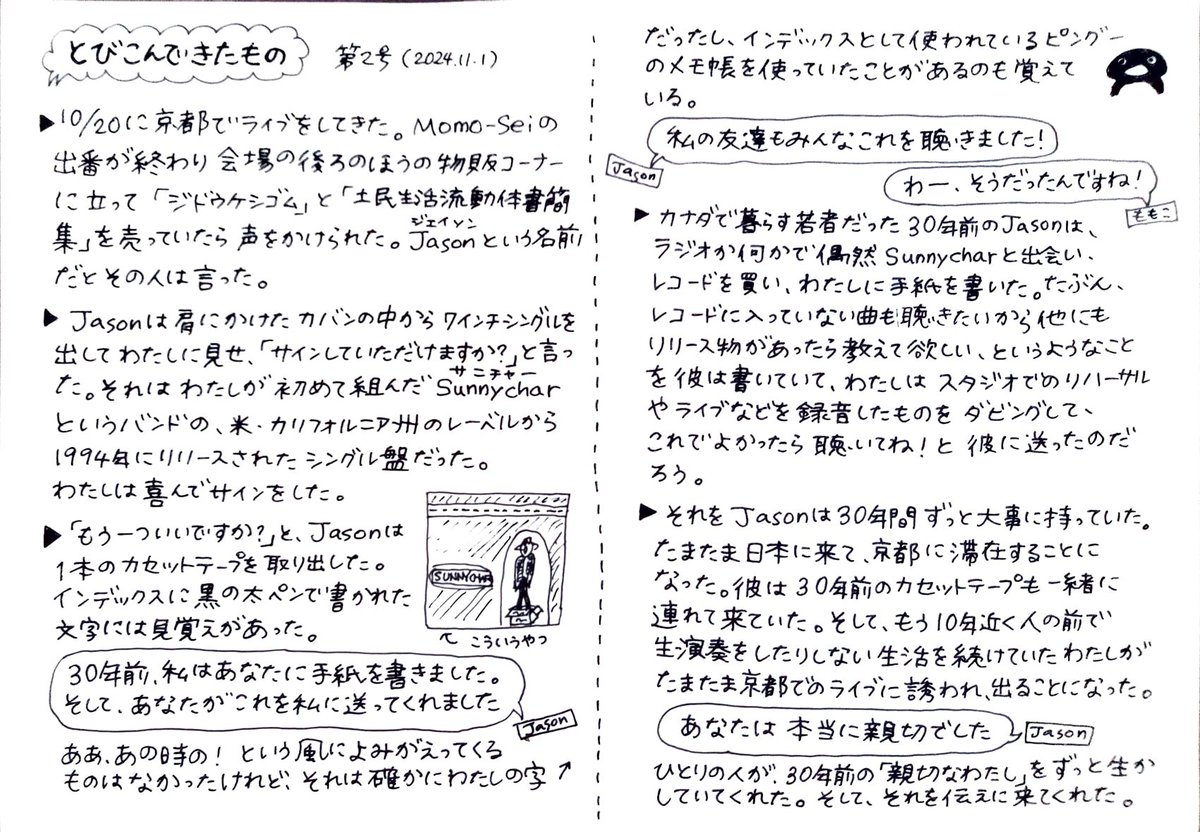 とびこんできたもの 第2号(2024.11.1)
▶10/20に京都でライブをしてきた。Momo-Seiの
出番が終わり会場の後ろのほうの物販コーナー
に立って「ジドウケシゴム」と「土民生活流動体書簡
集」を売っていたら声をかけられた。Jasonという名前
ジェイソン
だとその人は言った。
▶Jasonは肩にかけたカバンの中から7インチシングルを
出してわたしに見せ、「サインしていただけますか?」と言っ
た。それはわたしが初めて組んだSunnychar
サニチャー
というバンドの、米・カリフォルニア州のレーベルから
1994年にリリースされたシングル盤だった。
わたしは喜んでサインをした。
▶「もう一ついいですか?」と、Jasonは
1本のカセットテープを取り出した。
インデックスに黒の太ペンで書かれた
文字には見覚えがあった。
SUNNYCHAR
↖こういうやつ
30年前、私はあなたに手紙を書きました。
そして、あなたがこれを私に送ってくれました
Jason
ああ、あの時の!という風によみがえってくる
ものはなかったけれど、それは確かにわたしの字↗
だったし、インデックスとして使われているピングー
のメモ帳を使っていたことがあるのも覚えて
いる。
私の友達もみんなこれを聴きました!
Jason
わー、そうだったんですね!
そもこ
▶カナダで暮らす若者だった30年前のJasonは、
ラジオか何かで偶然Sunnycharと出会い、
レコードを買い、わたしに手紙を書いた。たぶん、
レコードに入っていない曲も聴きたいから他にも
リリース物があったら教えて欲しい、というようなこと
を彼は書いていて、わたしはスタジオでのリハーサル
やライブなどを録音したものをダビングして、
これでよかったら聴いてね!と彼に送ったのだ
ろう。
▶それをJasonは30年間ずっと大事に持っていた。
たまたま日本に来て、京都に滞在することに
なった。彼は30年前のカセットテープも一緒に
連れて来ていた。そして、もう10年近く人の前で
生演奏をしたりしない生活を続けていたわたしが
たまたま京都でのライブに誘われ、出ることになった。
あなたは本当に親切でした
Jason
ひとりの人が、30年前の「親切なわたし」をずっと生か
していてくれた。そして、それを伝えに来てくれた。